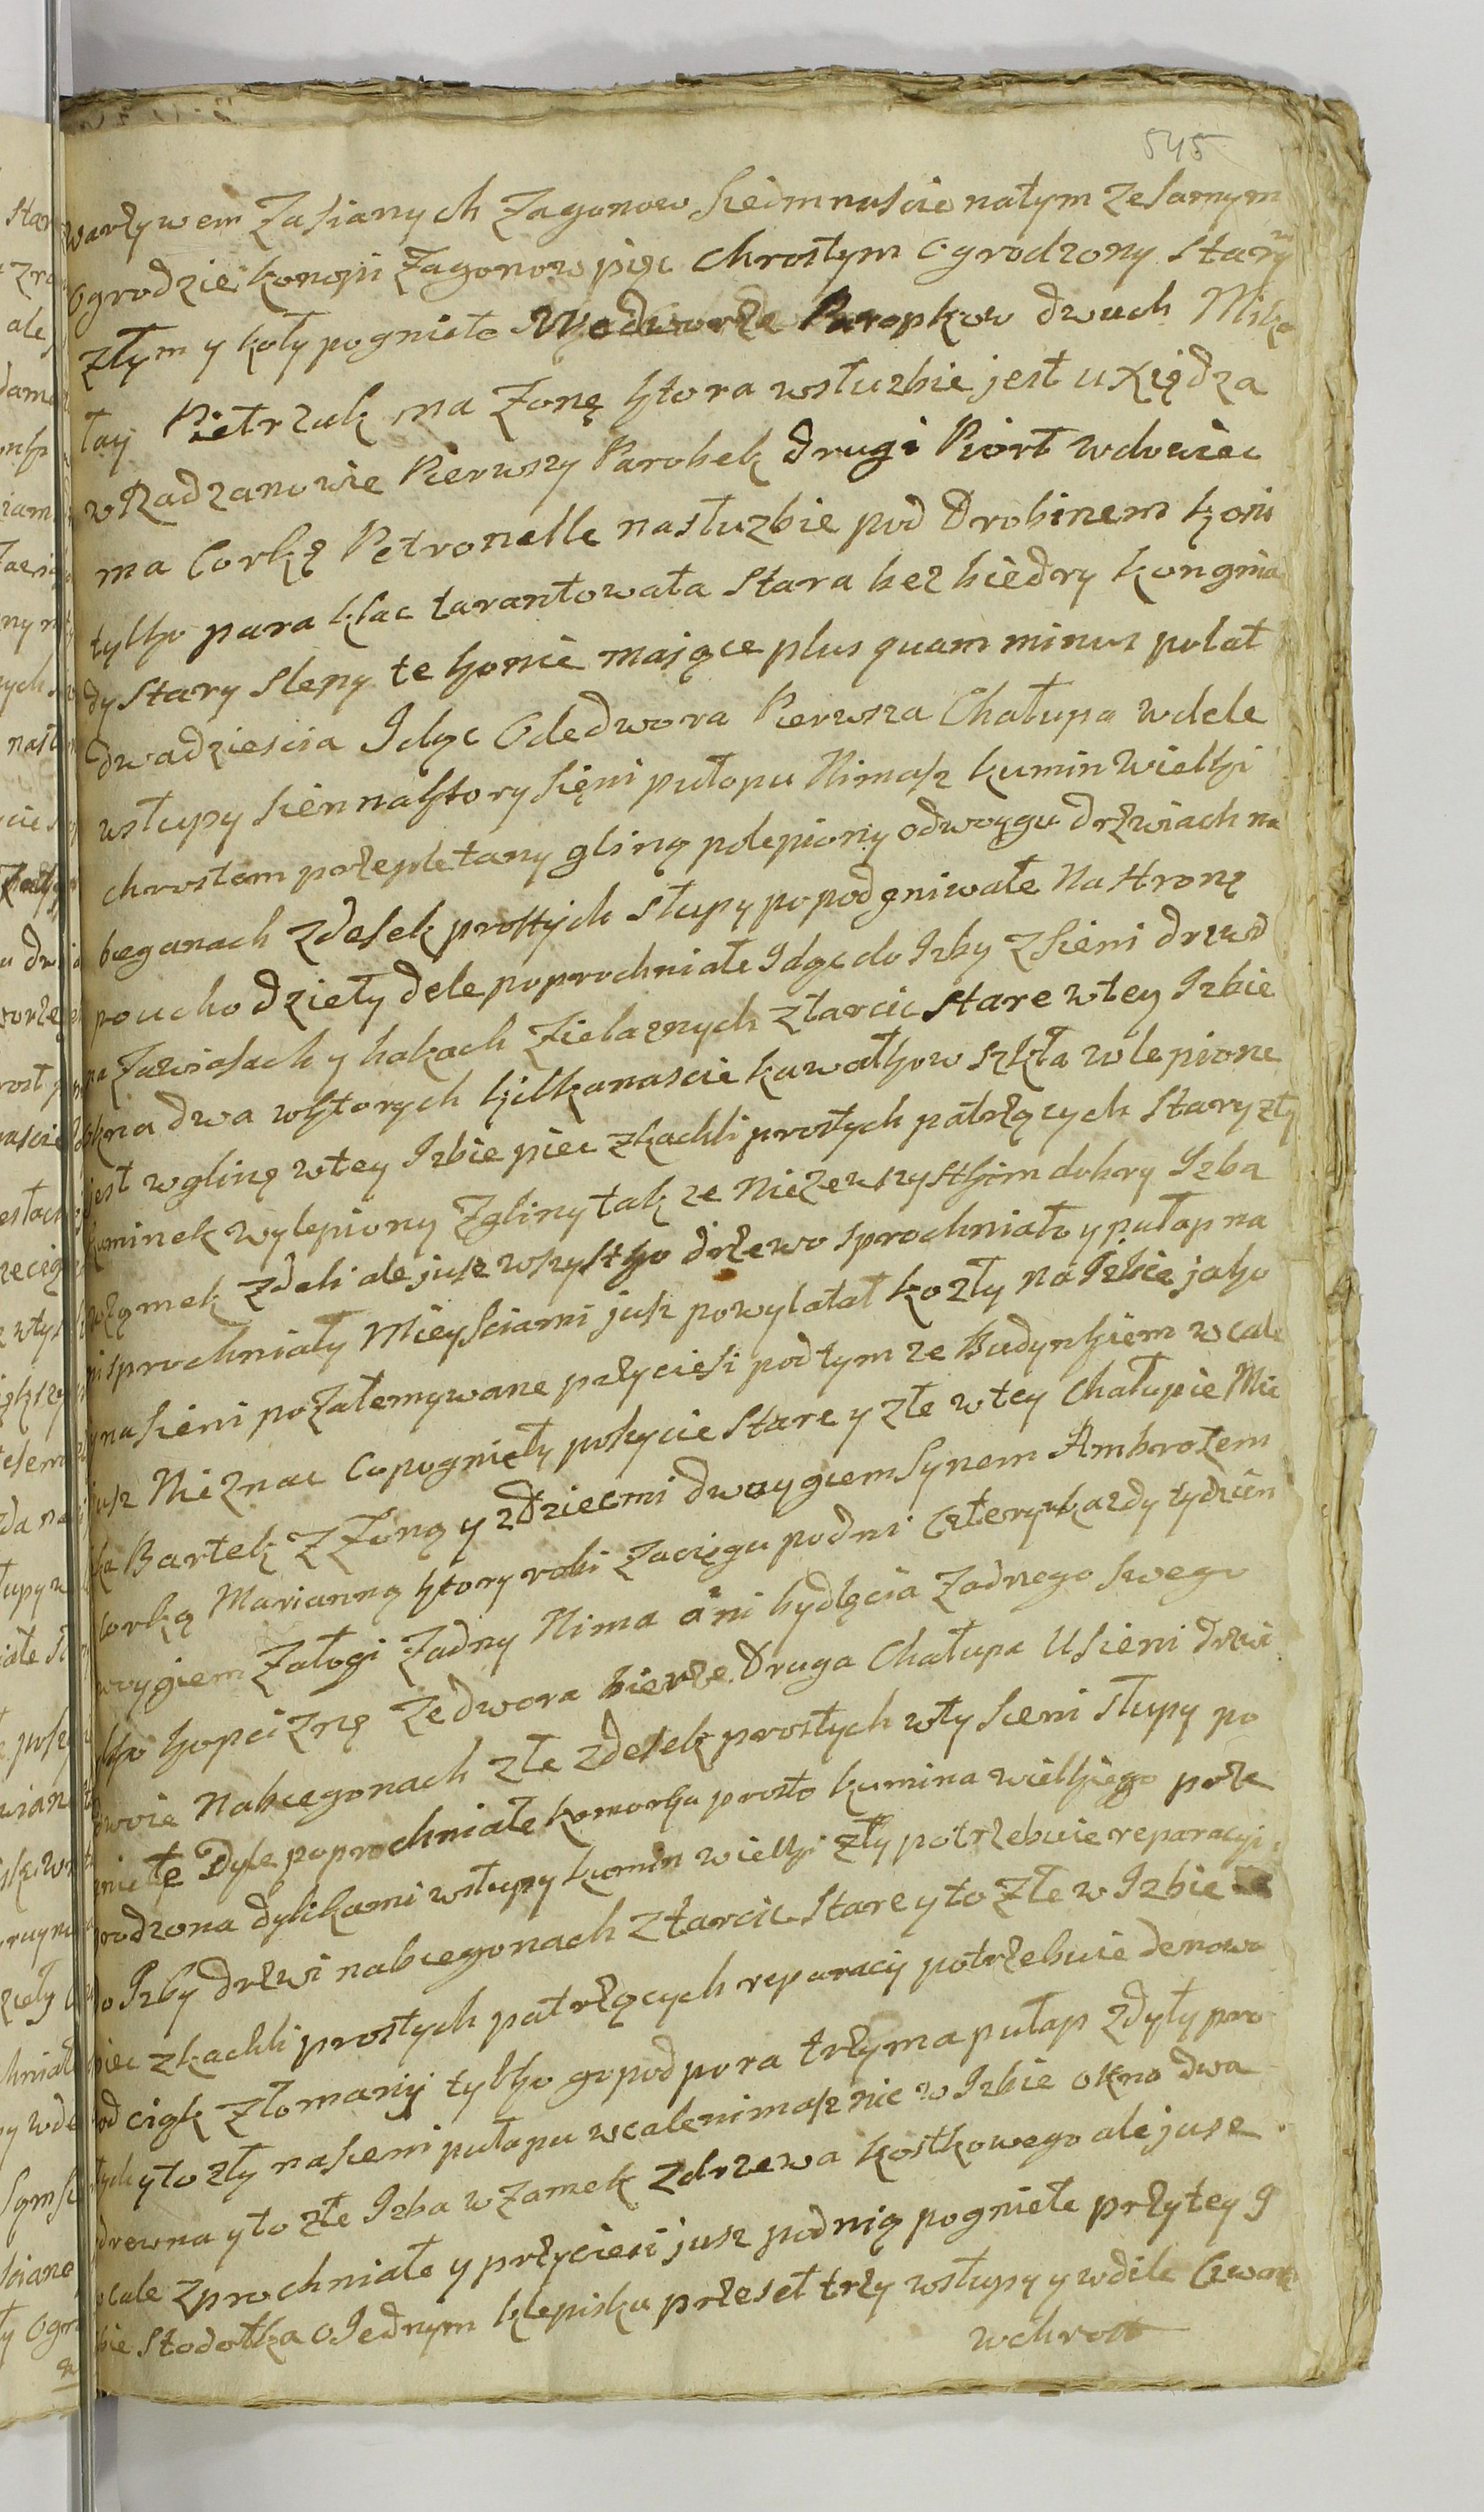 545
warzywem Zasianych Zagonow Siedmnascie natym zesamym
Ogrodzie konopii Zagonow pięc Chrostym Ogrodzony stary
złym y koły pogniełe Wedworze Paropkow dwuch Miko
łay Pietrzak ma Zonę ktora wsłuzbie jest u Xiędza
w Radzanowie Pierwszy Parobek drugi Piotr wdowiec
ma Corkę Petronelle nasłuzbie pod Drobinem koni
tylko para klac tarantowata Stara bez biedry kongnia
dy Stary Slepy te konie maiące plus quam minus polat
dwadziescia Idąc Odedwora Pierwsza Chałupa wdele
wstupy Sien naktory Sięni pułapu Nimasz kumin wielki
chrostem przepletany gliną polepiony odwoygu drzwiach na
bieganach zdesek prostych Słupy popodgniwałe Na stronę
poucho dzieły dele poprochniałe Idąc do Izby z Sieni drzwi
na Zawiasach y hakach Zielaznych z tarcic stare wtey Izbie
okna dwa wktorych kilkanascie kawałkow szkła wlepione
jest wglinę wtey Izbie piec zkachli prostych patrzących Stary zły
kuminek wylepiony Zgliny tak ze Nieze wszystkim dobry Izba
wzamek zdeli ale jusz wszystko drzewo sprochniało y pułap na
ni sprochniały Mieysciami jusz powylatał kozły na Izbie jako
y na Sieni pozałemywane przyciesi podtym ze Budynkiem wcale
jusz Nie znac Copogniełły pokycie Stare y złe wtey Chałupie Mie
ka Bartek Z Zoną y zdziecmi dwoygiem Synem Ambrozem
Corką Marianną ktory robi Zaciągu podni Cztery każdy tydzien
woygiem Załogi Zadny Nima ani bydlęcia Zadnego Swego
tylko kopciznę Zedwora bierze. Druga Chałupa U Sieni drzwi
dwoie Nabiegonach złe zdesek prostych wty Sieni Słupy po
gniełe Dyle poprochniałe komorka prosto kumina wielkiego prze
grodzona dylikami wstupy kumin wielki zły potrzebuie reparacyi
do Izby drzwi nabiegonach z tarcic Stare y to złe w Izbie
piec zkachli prostych patrzących reparacij potrzebuie denowo
pod ciąk złomanij tylko go podpora trzyma pułap z dyły pro
stych y to zły na Sieni pułapu wcale nimasz nic w Izbie okna dwa
drewna y to złe Izba w Zamek z drzewa kostkowego ale jusz
wcale zprochniałe y przyciesi jusz podnią pogniełe przytey I
bie Stodołka o Iednym klepisku przeseł trzy wstupy y wdile Czwar
wchrost